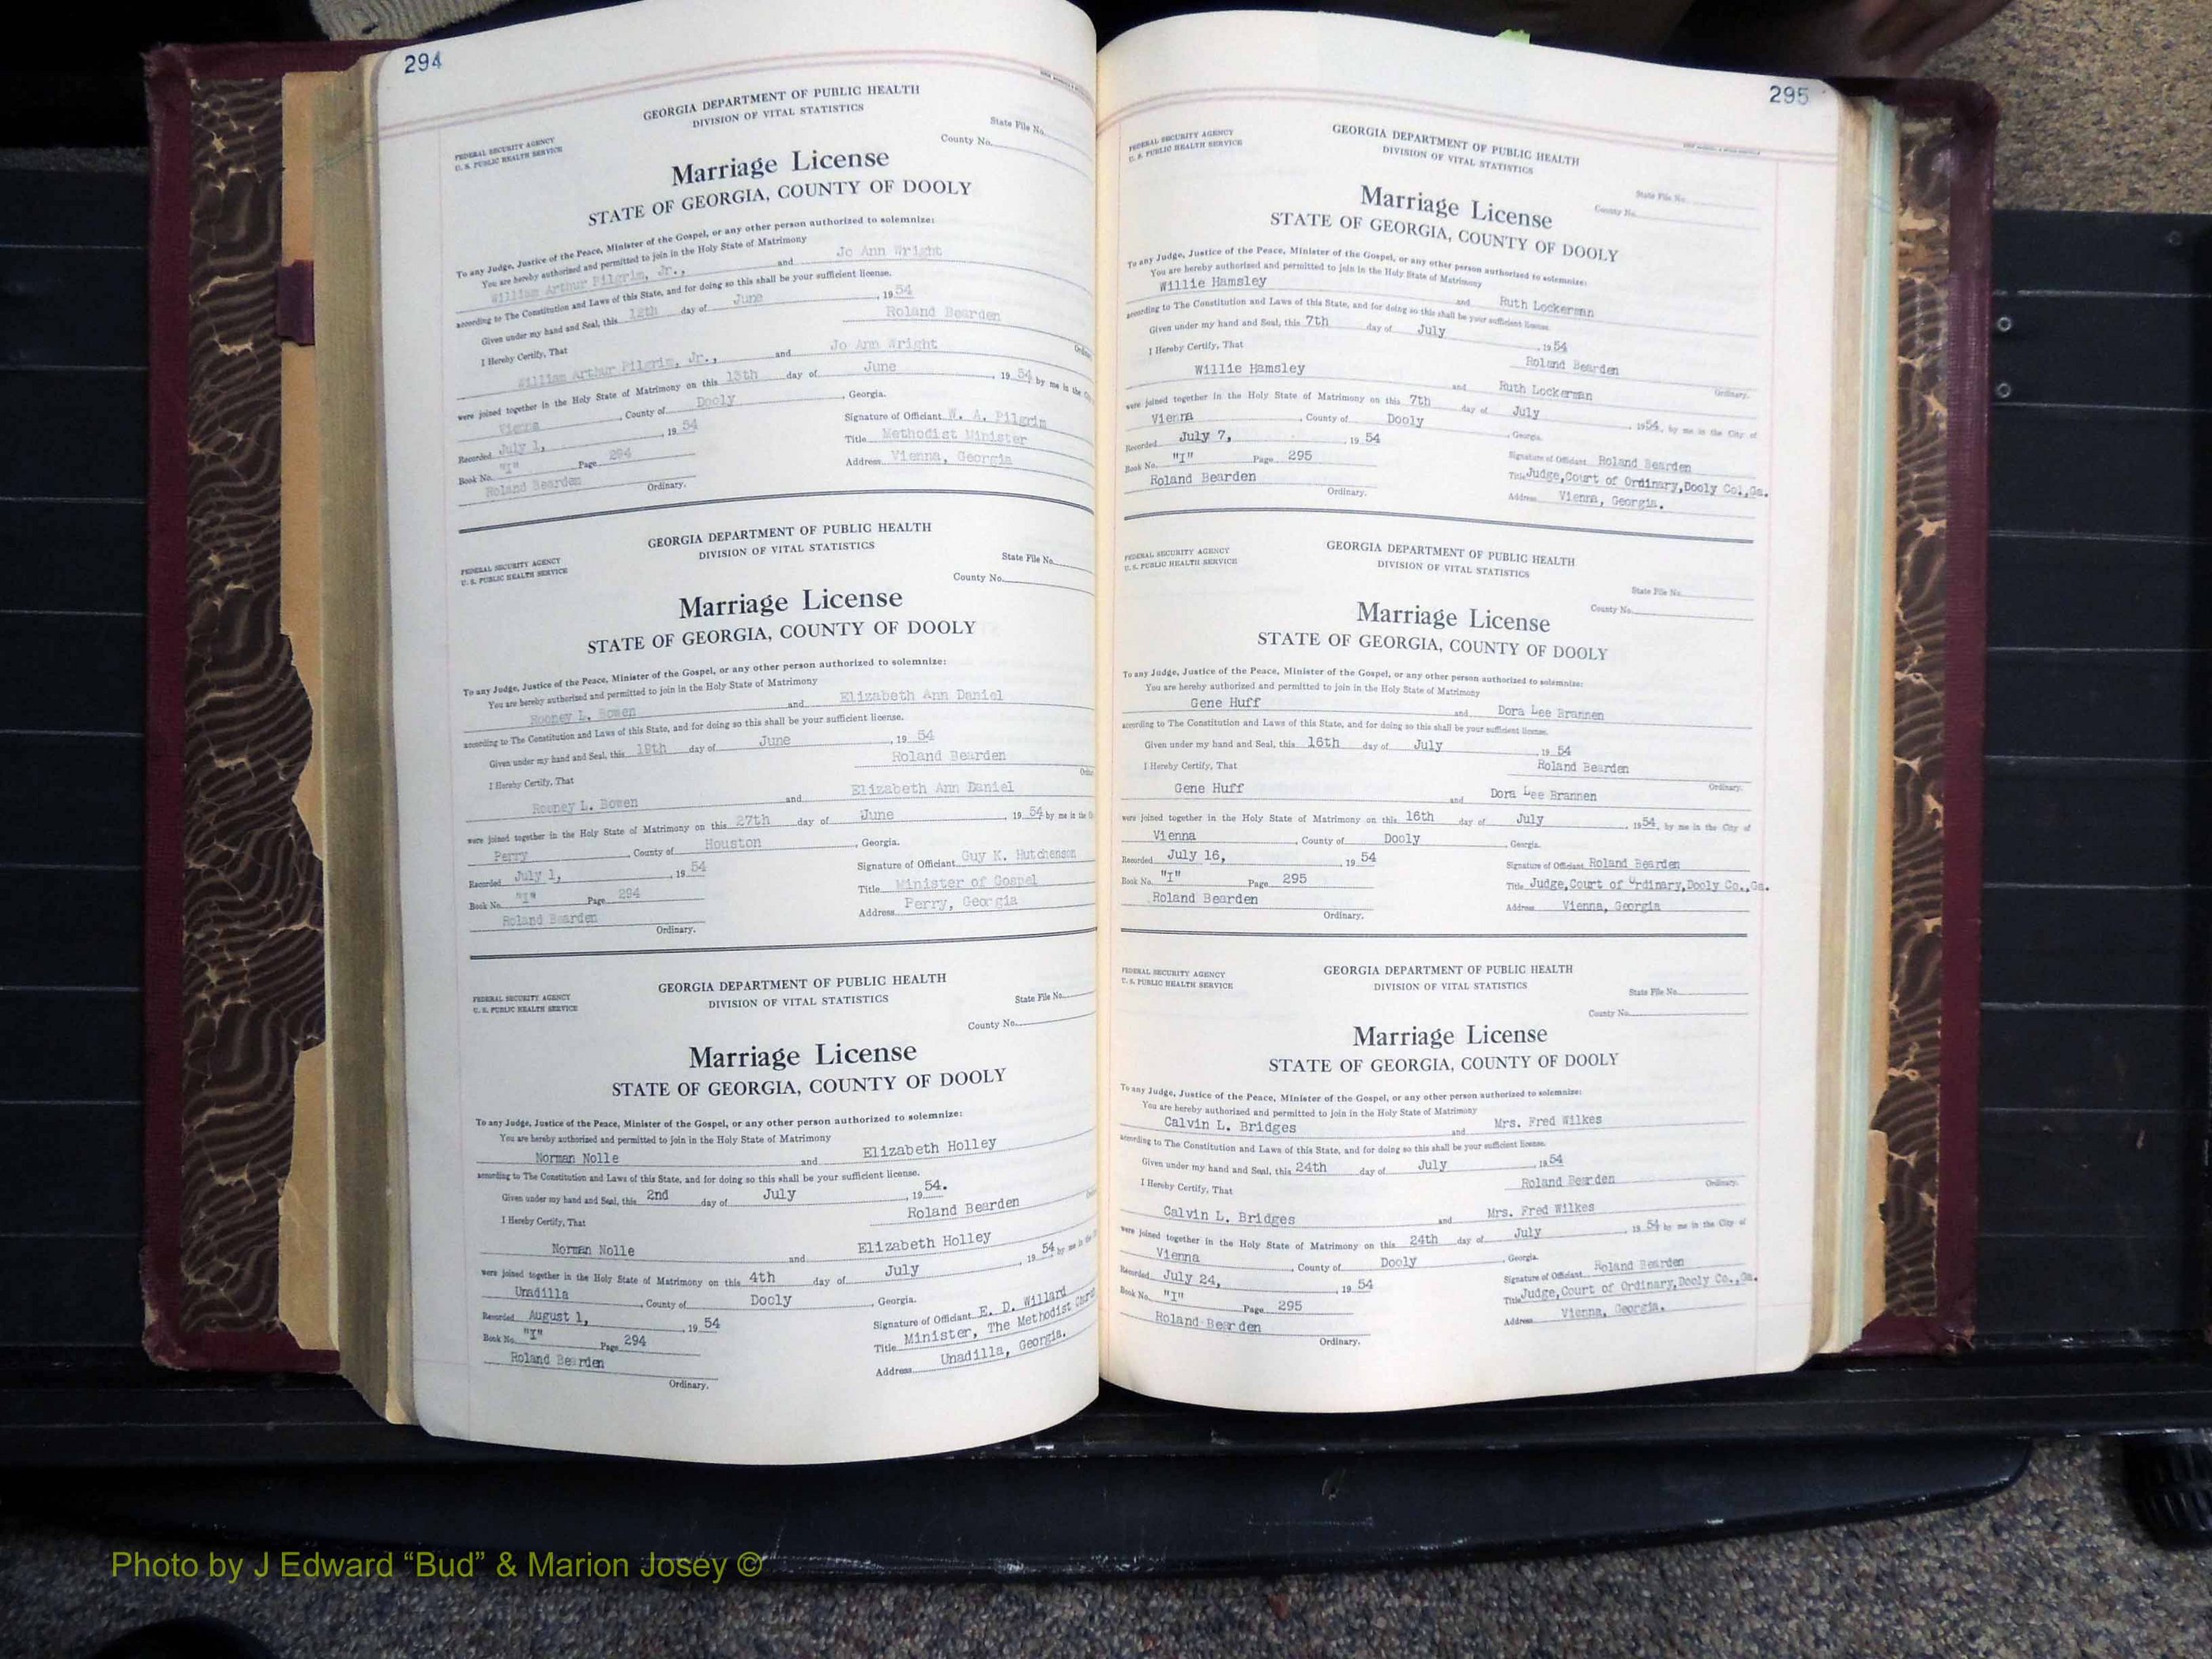 294
GEORGIA DEPARTMENT OF PUBLIC HEALTH
DIVISION OF VITAL STATISTICS
FEDERAL SECURITY AGENCY
U. S. PUBLIC HEALTH SERVICE
State File No.
County No.
Marriage License
STATE OF GEORGIA, COUNTY OF DOOLY
To any Judge, Justice of the Peace, Minister of the Gospel, or any other person authorized to solemnize:
You are hereby authorized and permitted to join in the Holy State of Matrimony
William Arthur Pilgrim, Jr., and Jo Ann Wright
according to The Constitution and Laws of this State, and for doing so this shall be your sufficient license.
Given under my hand and Seal, this 12th day of June, 1954
Roland Bearden
I Hereby Certify, That
William Arthur Pilgrim, Jr., and Jo Ann Wright
were joined together in the Holy State of Matrimony on this 13th day of June 1954 by me in the
Vienna, County of Dooly, Georgia.
Recorded July 1, 1954
Book No. "I" Page 294
Roland Bearden
Ordinary.
Signature of Officiant W. A. Pilgrim
Title Methodist Minister
Address Vienna, Georgia
GEORGIA DEPARTMENT OF PUBLIC HEALTH
DIVISION OF VITAL STATISTICS
FEDERAL SECURITY AGENCY
U. S. PUBLIC HEALTH SERVICE
State File No.
County No.
Marriage License
STATE OF GEORGIA, COUNTY OF DOOLY
To any Judge, Justice of the Peace, Minister of the Gospel, or any other person authorized to solemnize:
You are hereby authorized and permitted to join in the Holy State of Matrimony
Rooney L. Bowen and Elizabeth Ann Daniel
according to The Constitution and Laws of this State, and for doing so this shall be your sufficient license.
Given under my hand and Seal, this 19th day of June, 1954
Roland Bearden
I Hereby Certify, That
Rooney L. Bowen and Elizabeth Ann Daniel
were joined together in the Holy State of Matrimony on this 27th day of June, 1954 by me in the
Perry, County of Houston, Georgia.
Recorded July 1, 1954
Book No. "I" Page 294
Roland Bearden
Ordinary.
Signature of Officiant Guy K. Hutchenson
Title Minister of Gospel
Address Perry, Georgia
GEORGIA DEPARTMENT OF PUBLIC HEALTH
DIVISION OF VITAL STATISTICS
FEDERAL SECURITY AGENCY
U. S. PUBLIC HEALTH SERVICE
State File No.
County No.
Marriage License
STATE OF GEORGIA, COUNTY OF DOOLY
To any Judge, Justice of the Peace, Minister of the Gospel, or any other person authorized to solemnize:
You are hereby authorized and permitted to join in the Holy State of Matrimony
Norman Nolle and Elizabeth Holley
according to The Constitution and Laws of this State, and for doing so this shall be your sufficient license.
Given under my hand and Seal, this 2nd day of July, 1954.
Roland Bearden
I Hereby Certify, That
Norman Nolle and Elizabeth Holley
were joined together in the Holy State of Matrimony on this 4th day of July, 1954 by me in the
Unadilla, County of Dooly, Georgia.
Recorded August 1, 1954
Book No. "I" Page 294
Roland Bearden
Ordinary.
Signature of Officiant E. D. Willard
Title Minister, The Methodist Church
Address Unadilla, Georgia.
295
GEORGIA DEPARTMENT OF PUBLIC HEALTH
DIVISION OF VITAL STATISTICS
FEDERAL SECURITY AGENCY
U. S. PUBLIC HEALTH SERVICE
State File No.
County No.
Marriage License
STATE OF GEORGIA, COUNTY OF DOOLY
To any Judge, Justice of the Peace, Minister of the Gospel, or any other person authorized to solemnize:
You are hereby authorized and permitted to join in the Holy State of Matrimony
Willie Hamsley and Ruth Lockerman
according to The Constitution and Laws of this State, and for doing so this shall be your sufficient license.
Given under my hand and Seal, this 7th day of July, 1954
Roland Bearden
Ordinary.
I Hereby Certify, That
Willie Hamsley and Ruth Lockerman
were joined together in the Holy State of Matrimony on this 7th day of July, 1954, by me in the City of
Vienna, County of Dooly, Georgia.
Recorded July 7, 1954
Book No. "I" Page 295
Roland Bearden
Ordinary.
Signature of Officiant Roland Bearden
Title Judge,Court of Ordinary,Dooly Co.,Ga.
Address Vienna, Georgia.
GEORGIA DEPARTMENT OF PUBLIC HEALTH
DIVISION OF VITAL STATISTICS
FEDERAL SECURITY AGENCY
U. S. PUBLIC HEALTH SERVICE
State File No.
County No.
Marriage License
STATE OF GEORGIA, COUNTY OF DOOLY
To any Judge, Justice of the Peace, Minister of the Gospel, or any other person authorized to solemnize:
You are hereby authorized and permitted to join in the Holy State of Matrimony
Gene Huff and Dora Lee Brannen
according to The Constitution and Laws of this State, and for doing so this shall be your sufficient license.
Given under my hand and Seal, this 16th day of July, 1954
Roland Bearden
Ordinary.
I Hereby Certify, That
Gene Huff and Dora Lee Brannen
were joined together in the Holy State of Matrimony on this 16th day of July, 1954, by me in the City of
Vienna, County of Dooly, Georgia.
Recorded July 16, 1954
Book No. "I" Page 295
Roland Bearden
Ordinary.
Signature of Officiant Roland Bearden
Title Judge,Court of Ordinary,Dooly Co.,Ga.
Address Vienna, Georgia
GEORGIA DEPARTMENT OF PUBLIC HEALTH
DIVISION OF VITAL STATISTICS
FEDERAL SECURITY AGENCY
U. S. PUBLIC HEALTH SERVICE
State File No.
County No.
Marriage License
STATE OF GEORGIA, COUNTY OF DOOLY
To any Judge, Justice of the Peace, Minister of the Gospel, or any other person authorized to solemnize:
You are hereby authorized and permitted to join in the Holy State of Matrimony
Calvin L. Bridges and Mrs. Fred Wilkes
according to The Constitution and Laws of this State, and for doing so this shall be your sufficient license.
Given under my hand and Seal, this 24th day of July, 1954
Roland Bearden
Ordinary.
I Hereby Certify, That
Calvin L. Bridges and Mrs. Fred Wilkes
were joined together in the Holy State of Matrimony on this 24th day of July, 1954 by me in the City of
Vienna, County of Dooly, Georgia.
Recorded July 24, 1954
Book No. "I" Page 295
Roland Bearden
Ordinary.
Signature of Officiant Roland Bearden
Title Judge,Court of Ordinary,Dooly Co.,Ga.
Address Vienna, Georgia.
Photo by J Edward “Bud” & Marion Josey ©